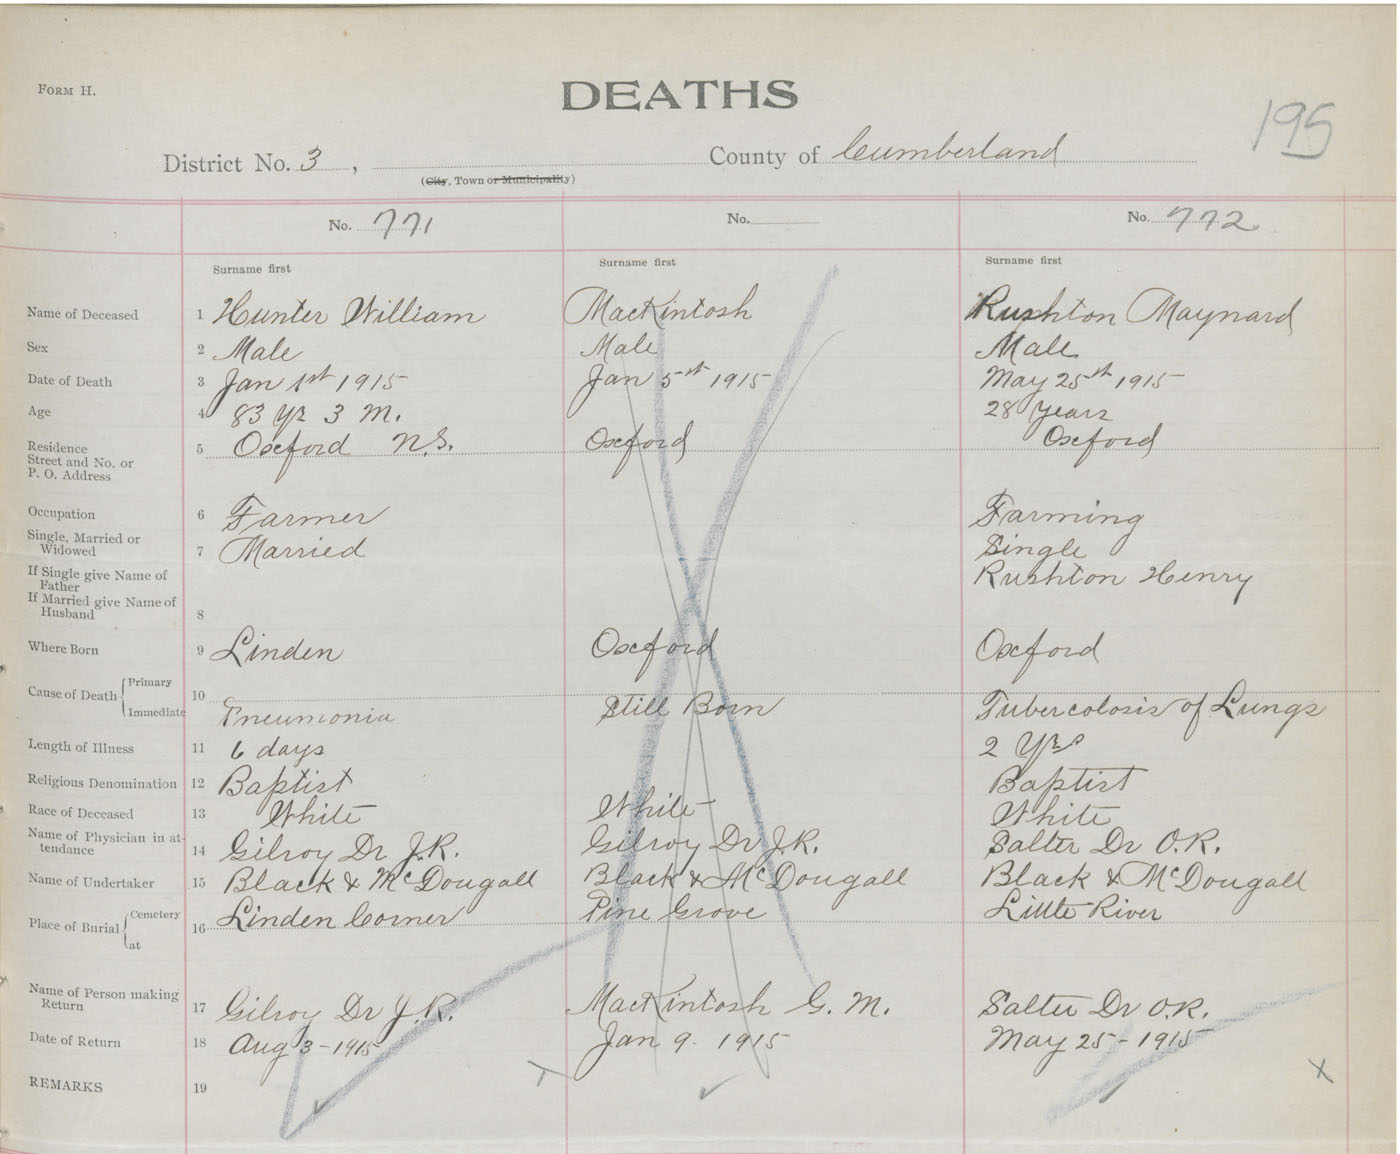 FORM H.
DEATHS
195
District No. 3, County of Cumberland
(City, Town or Municipality)
No. 771 No. No. 772
Surname first Surname first Surname first
Name of Deceased 1 Hunter William MacKintosh Rushton Maynard
Sex 2 Male Male Male
Date of Death 3 Jan 1st 1915 Jan 5st 1915 May 25st 1915
Age 4 83 yr 3 M. 28 years
Residence
Street and No. or
P. O. Address 5 Oxford N.S. Oxford Oxford
Occupation 6 Farmer Farming
Single, Married or
Widowed 7 Married Single
If Single give Name of
Father Rushton Henry
If Married give Name of
Husband 8
Where Born 9 Linden Oxford Oxford
Cause of Death Primary 10
Immediate Pneumonia Still Born Tubercolosis of Lungs
Length of Illness 11 6 days 2 Yrs
Religious Denomination 12 Baptist Baptist
Race of Deceased 13 White White White
Name of Physician in at-
tendance 14 Gilroy Dr J.R. Gilroy Dr J.R. Salter Dr O.R.
Name of Undertaker 15 Black & McDougall Black & McDougall Black & McDougall
Place of Burial Cemetery
at 16 Linden Corner Pine Grove Little River
Name of Person making
Return 17 Gilroy Dr J.R. MacKintosh G. M. Salter Dr O.R.
Date of Return 18 Aug 3-1915 Jan 9. 1915 May 25-1915
REMARKS 19